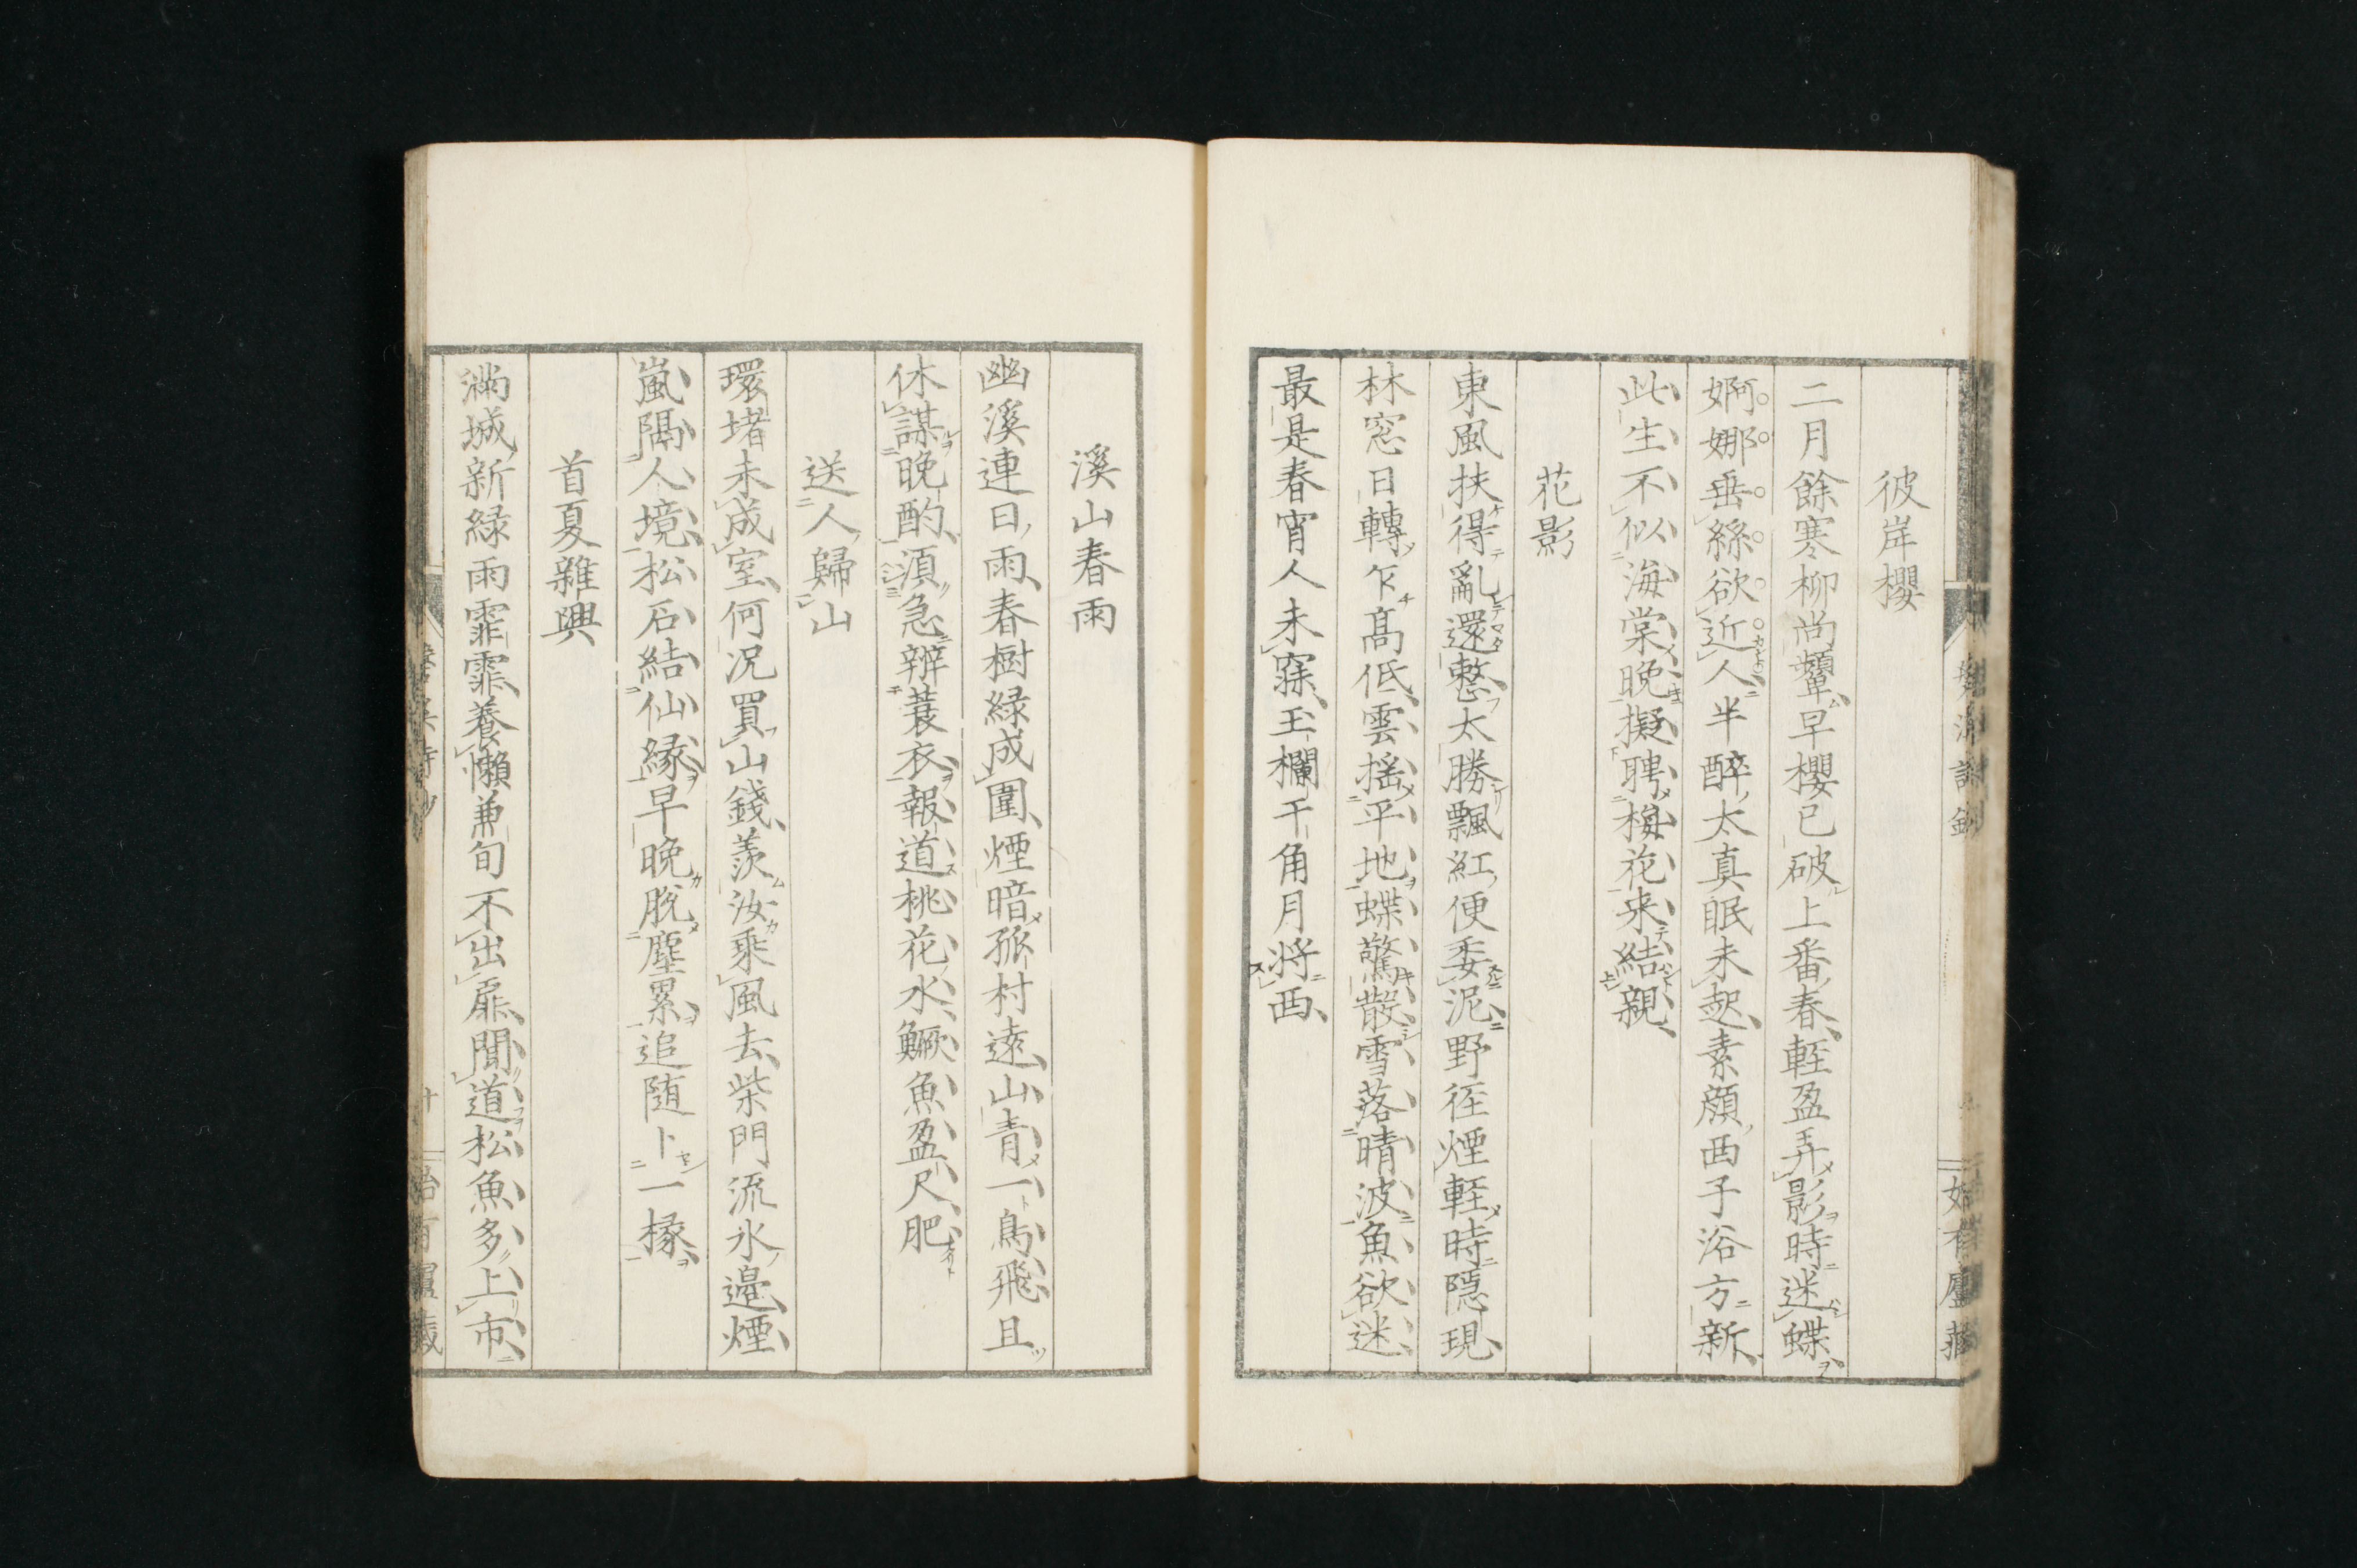 彼岸櫻
二月餘寒柳尚顰早櫻已破上番春輕盈弄影時迷蝶
婀娜垂絲欲近人半醉太真眠未起素顔西子浴方新
此生不似海棠晚擬聘梅花来結親
花影
東風扶得亂還整太勝飄紅便委泥野徑煙輕時隱現
林窓日轉乍髙低雲搖平地蝶驚散雪落晴波魚欲迷
最是春宵人未寐玉欄干角月將西
溪山春雨
幽溪連日雨春樹緑成圍煙暗孤村遠山青一鳥飛且
休謀晚酌須急辨蓑衣報道桃花水鱖魚盈尺肥
送人歸山
環堵未成室何况買山錢羨汝乘風去柴門流水邉煙
嵐隔人境松石結仙縁早晚脱塵累追随卜一椽
首夏雜興
滿城新緑雨霏霏養懶兼旬不出扉聞道松魚多上市